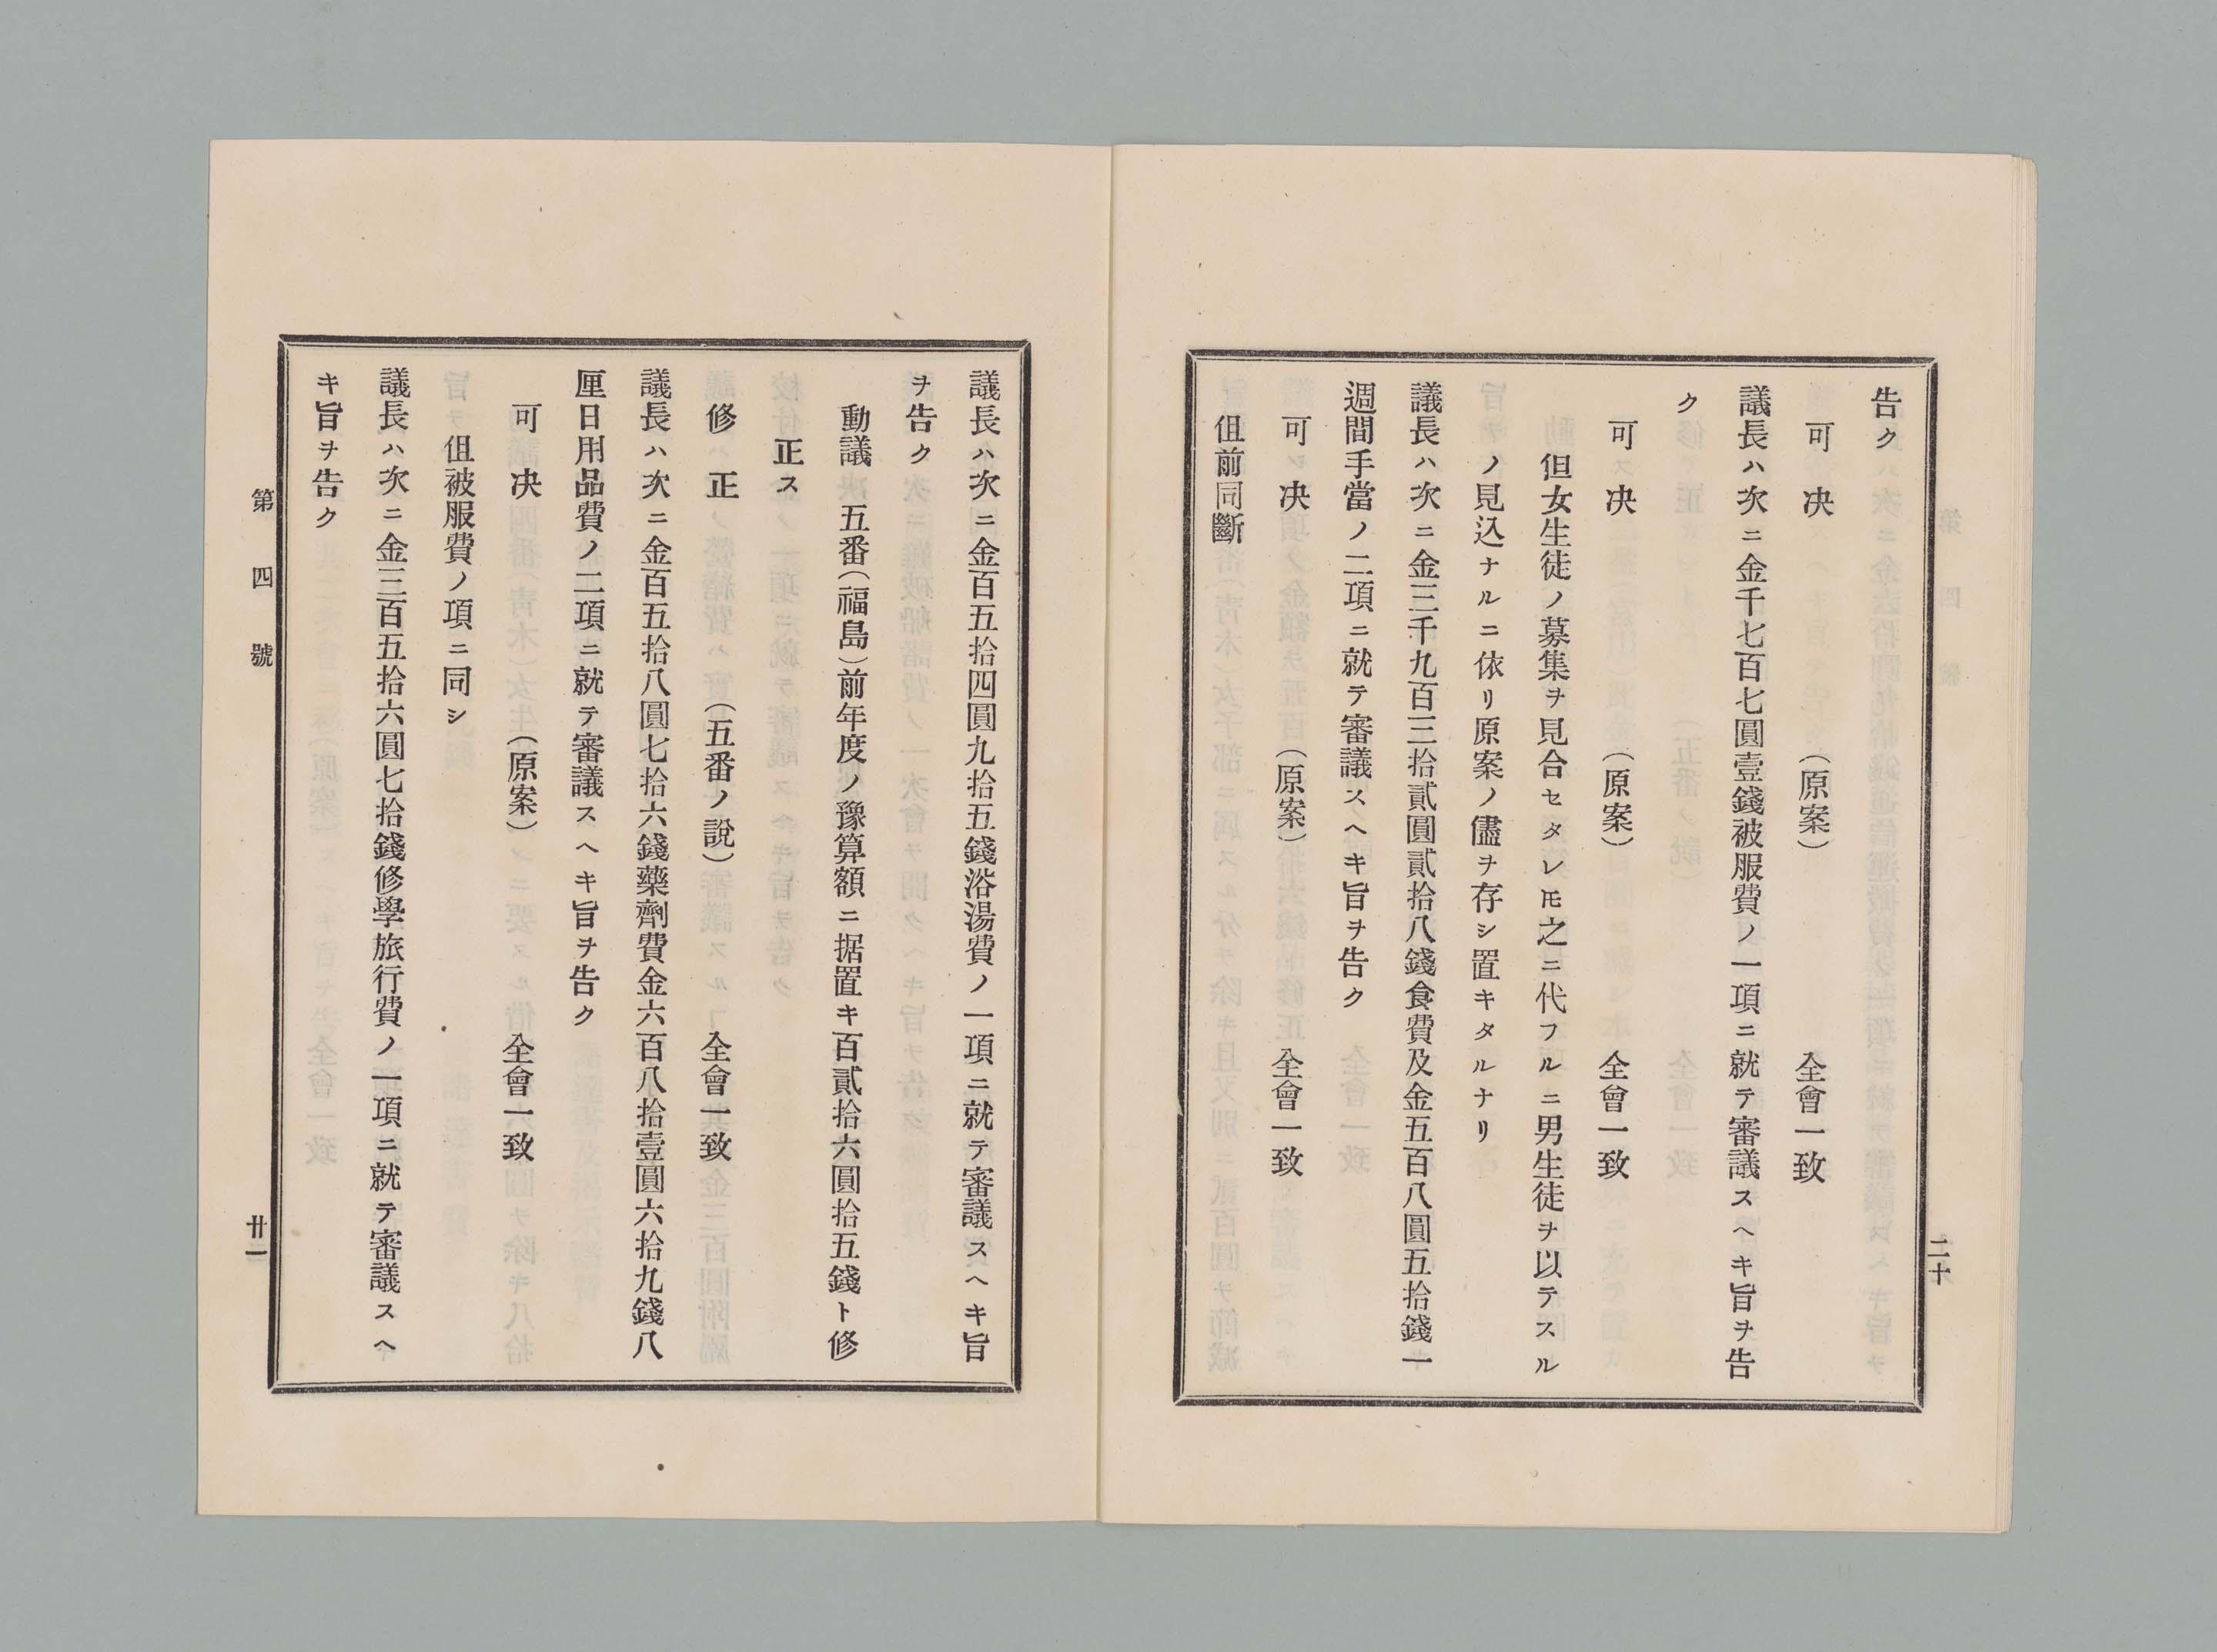 告ク
可決　（原案）　全會一致
議長ハ次ニ金千七百七圓壹錢被服費ノ一項ニ就テ審議スヘキ旨ヲ告
ク
可決　（原案）　全會一致
但女生徒ノ募集ヲ見合セタレ𪜈之ニ代フルニ男生徒ヲ以テスル
ノ見込ナルニ依リ原案ノ儘ヲ存シ置キタルナリ
議長ハ次ニ金三千九百三拾貳圓貳拾八錢食費及金五百八圓五拾錢一
週間手當ノ二項ニ就テ審議スヘキ旨ヲ告ク
可決　（原案）　全會一致
伹前同斷
二十
議長ハ次ニ金百五拾四圓九拾五錢浴湯費ノ一項ニ就テ審議スヘキ旨
ヲ告ク
動議　五番（福島）前年度ノ豫算額ニ据置キ百貳拾六圓拾五錢ト修
正ス
修正　（五番ノ說）　全會一致
議長ハ次ニ金百五拾八圓七拾六錢藥劑費金六百八拾壹圓六拾九錢八
厘日用品費ノ二項ニ就テ審議スヘキ旨ヲ告ク
可決　（原案）　全會一致
伹被服費ノ項ニ同シ
議長ハ次ニ金三百五拾六圓七拾錢修學旅行費ノ一項ニ就テ審議スヘ
キ旨ヲ告ク
第四號
廿一